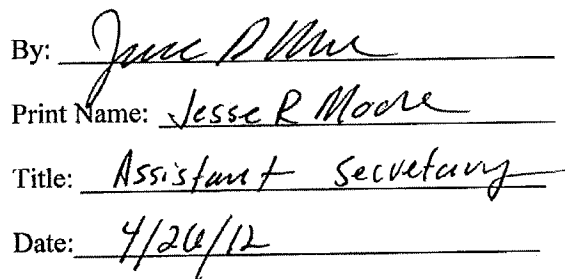 By:
Print Name: Jesse R Moore
Title: Assistant Secretary
Date: 4/26/12